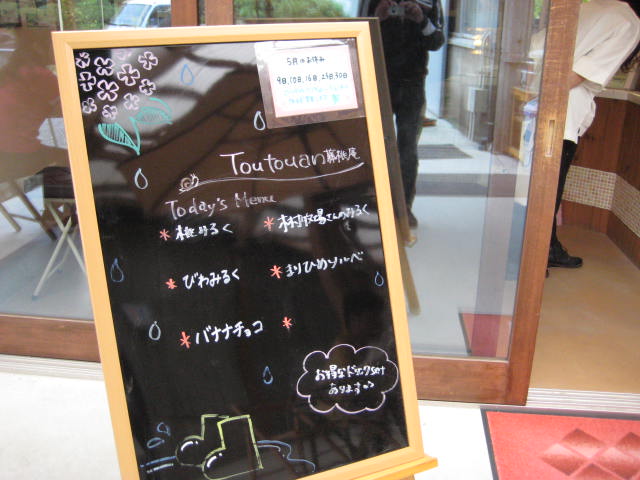 5月のお休み
9日、10日、16日、23日、30日
Toutouan 幕桃庵
Today's Menu
* 桃みるく
* 木村牧場さんのみるく
* びわみるく
* まりひめソルベ
* バナナチョコ
*
お得なドリンクset
あります